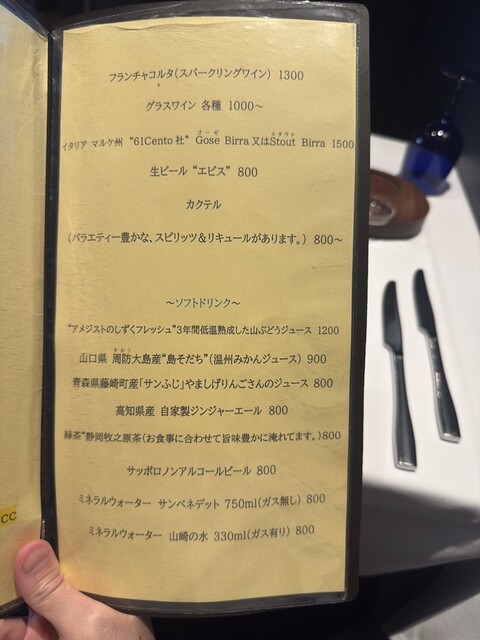 フランチャコルタ(スパークリングワイン) 1300
グラスワイン 各種 1000～
イタリア マルケ州 "61Cento社" Gose Birra 又はStout Birra 1500
生ビール "エビス" 800
カクテル
(バラエティー豊かな、スピリッツ＆リキュールがあります。) 800～
～ソフトドリンク～
"アメジストのしずくフレッシュ"3年間低温熟成した山ぶどうジュース 1200
山口県 周防大島産"島そだち"(温州みかんジュース) 900
青森県藤崎町産「サンふじ」やましげりんごさんのジュース 800
高知県産 自家製ジンジャーエール 800
緑茶"静岡牧之原茶(お食事に合わせて旨味豊かに淹れてます。)800
サッポロノンアルコールビール 800
ミネラルウォーター サンベネデット 750ml(ガス無し) 800
ミネラルウォーター 山崎の水 330ml(ガス有り) 800
CC